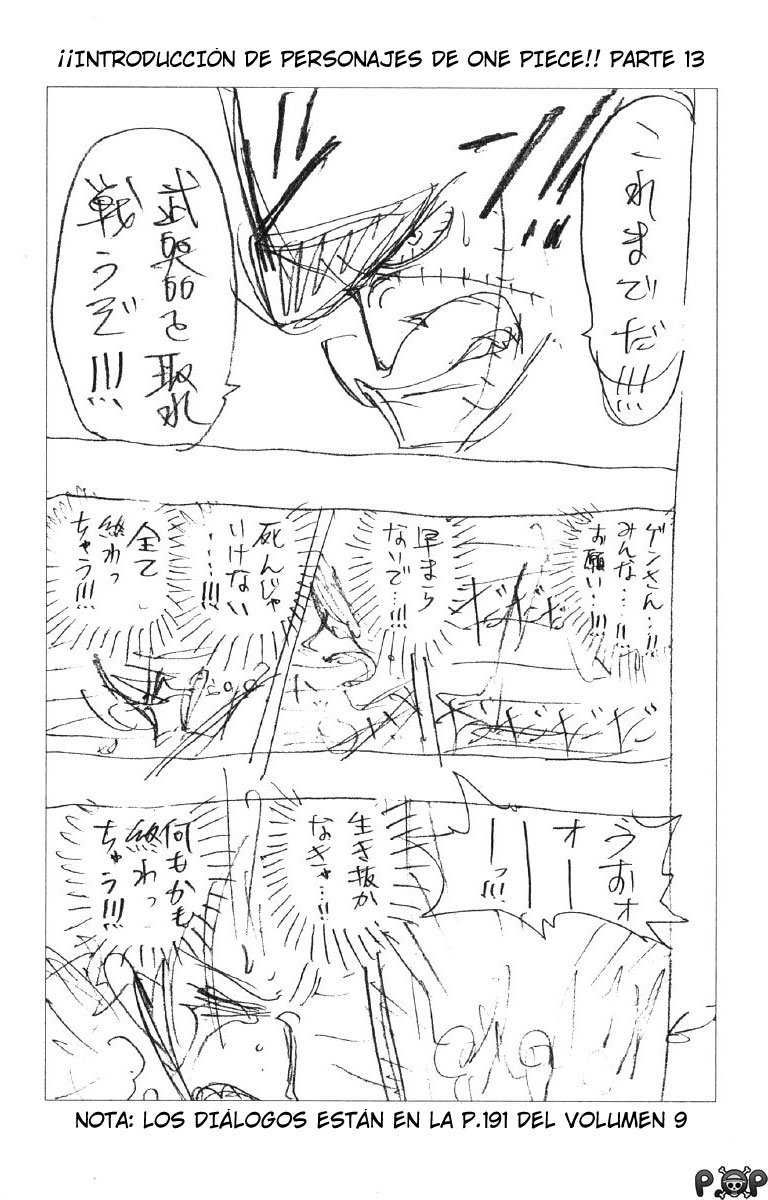 ¡¡INTRODUCCIÓN DE PERSONAJES DE ONE PIECE!! PARTE 13
これまでだ!!!
武器を取れ
戦うぞ!!!
ゲンさん…!!
みんな…!!
お願い…!!!
早まら
ないで…!!!
死んじゃ
いけない
…!!!
全て
終わっ
ちゃう!!!
だだだ
だだだだだ
うおォ
オーー
ーッ!!!
生き抜か
なきゃ…!!
何もかも
終わっ
ちゃう!!!
NOTA: LOS DIÁLOGOS ESTÁN EN LA P.191 DEL VOLUMEN 9
P.OP